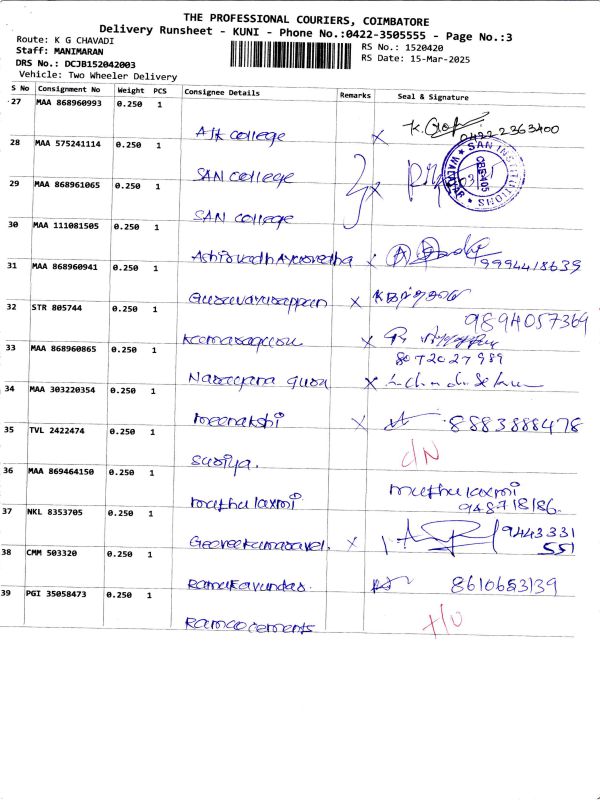 THE PROFESSIONAL COURIERS, COIMBATORE
Delivery Runsheet - KUNI - Phone No.:0422-3505555 - Page No.:3
Route: K G CHAVADI
RS No.: 1520420
Staff: MANIMARAN
RS Date: 15-Mar-2025
DRS No.: DCJB152042003
Vehicle: Two Wheeler Delivery
S No Consignment No Weight PCS Consignee Details Remarks Seal & Signature
27 MAA 868960993 0.250 1
AJK college x 04222363400
28 MAA 575241114 0.250 1
SAN college x
SAN INSTITUTIONS
WALAYAR
CBE-105
29 MAA 868961065 0.250 1
SAN college
30 MAA 111081505 0.250 1
x 9994418639
31 MAA 868960941 0.250 1
Guruvayurappan x
32 STR 805744 0.250 1
9894057369
Kumaraguru x
8072027989
33 MAA 868960865 0.250 1
Narayana guru x
34 MAA 303220354 0.250 1
meenakshi x 8883888478
35 TVL 2422474 0.250 1
suriya. D/N
36 MAA 869464150 0.250 1
muthulaxmi muthulaxmi
948718186.
37 NKL 8353705 0.250 1
x 9443331
551
38 CMM 503320 0.250 1
8610653139
39 PGI 35058473 0.250 1
Ramcocements